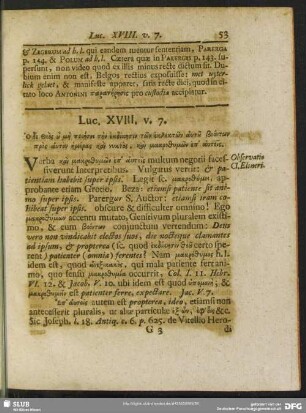 Luc. XVIII. v. 7. 53
& ZEGERUM ad h. l. qui eandem tuentur sententiam, PARERGA
p. 144. & POLUM ad h. l. Cætera quæ in PARERGIS p. 143. su-
persunt, non video quod exilii minus recte dictum sit. Du-
bium enim non est, Belgos rectius exposuisse: met uyter-
lick gelaet, & manifeste apparet, satis recte dici, quod in ci-
tato loco ANTONINI παρατήρησις pro custodia accipiatur.
Luc. XVIII. v. 7.
Ὁ δὲ Θεὸς ὐ μὴ ποιήσῃ τὴν ἐκδίκησιν τῶν ἐκλεκτῶν αὐτῦ βοώντων
πρὸς αὐτὸν ἡμέρας καὶ νυκτὸς, καὶ μακροθυμῶν ἐπ' αὐτοῖς;
Verba καὶ μακροθυμῶν ἐπ' αὐτοῖς multum negotii faces-
siverunt Interpretibus. Vulgatus vertit: & pa-
tientiam habebit super ipsis. Legit sc. μακροθυμεῖ,
approbante etiam Grotio. Beza: etiamsi patienter sit ani-
mo super ipsis. Parergω̃ν S. Autor: etiamsi iram co-
hibeat super ipsis. obscure & difficulter omnino! Ego
μακροθυμῶν accentu mutato, Genitivum pluralem existi-
mo, & cum βοώντων conjunctum vertendum: Deus
vero non vindicabit electos suos, die noctuque clamantes
ad ipsum, & propterea (sc. quod ἐκδίκησιν certo spe-
rent) patienter (omnia) ferentes? Nam μακροθυμῶν h. l.
idem est, quod ἀνεξίκακος, qui mala patienter fert ani-
mo, quo sensu μακροθυμία occurrit, Col. I. 11. Hebr.
VI. 12. & Jacob. V. 10. ubi idem est quod ὑπομονὴ; &
μακροθυμεῖν est patienter ferre, expectare. Jac. V. 7.
Ἐπ' αὐτοῖς autem est propterea, ideo, etiamsi non
antecesserit pluralis, ut alias particulæ ἐξ ὧν, ἐφ' οἷς &c.
Sic Joseph. l. 18. Antiq. c. 6. p. 625. de Vitellio Hero-
G 3 di
Observatio
Cl. Elsneri.